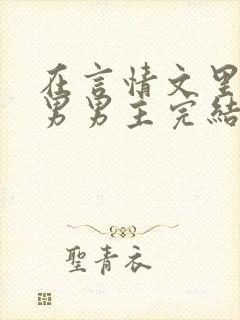 在言情文里
男男主完結
聖青衣